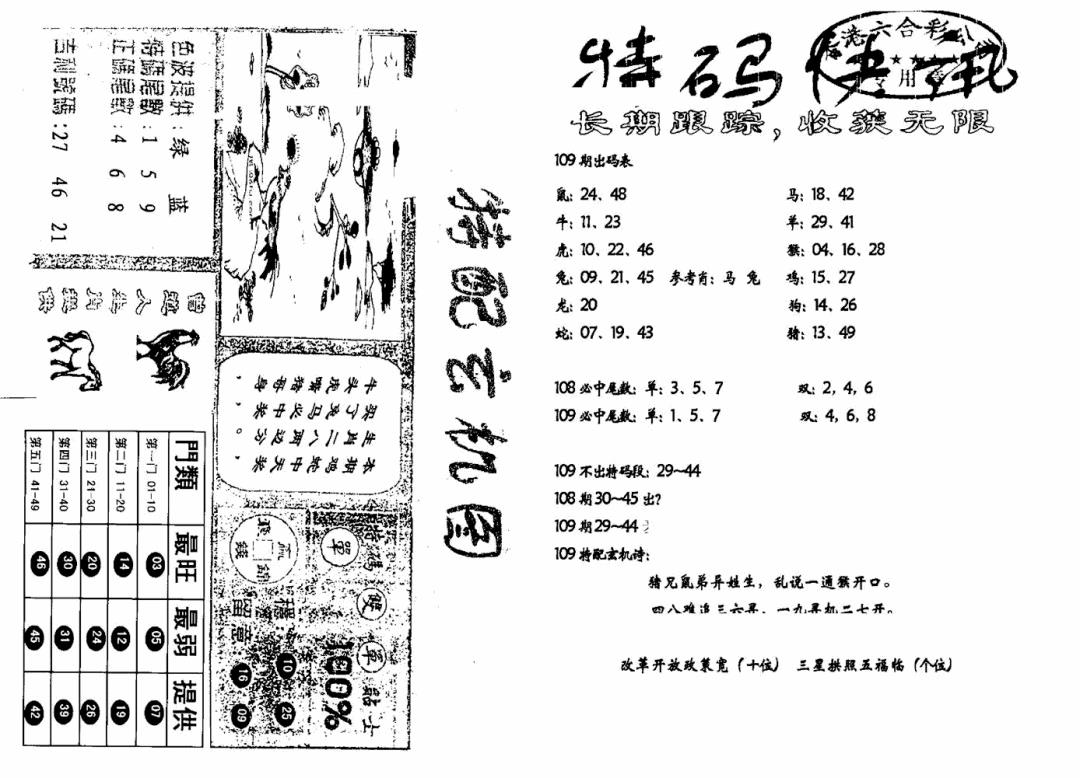 香港六合彩
★★★★★
专用章
特码快讯
长期跟踪，收获无限
109期出码表
鼠：24、48 马：18、42
牛：11、23 羊：29、41
虎：10、22、46 猴：04、16、28
兔：09、21、45 参考肖：马 兔 鸡：15、27
龙：20 狗：14、26
蛇：07、19、43 猪：13、49
108必中尾数：单：3、5、7 双：2，4，6
109必中尾数：单：1、5、7 双：4、6、8
109不出特码段：29~44
108期30~45出?
109期29~44
109特配玄机诗：
猪兄鼠弟异姓生，乱说一通猴开口。
四八难追三六寻，一九寻机二七开。
改革开放政策宽（十位） 三星拱照五福临（个位）
特配玄机图
色波提供：绿 蓝
特碼尾數：1 5 9
正碼尾數：4 6 8
吉利號碼：27 46 21
曾道人
門類 最旺 最弱 提供
第一门 01-10 03 05 07
第二门 11-20 14 12 19
第三门 21-30 20 24 26
第四门 31-40 30 31 39
第五门 41-49 46 45 42
牛头虎嘴猪善身，
买了兔马必中奖，
生肖二八两边分。
本期鸡蛇中天奖，
特碼
單
雙
單
貼士
100%
留意
10 25
16 09